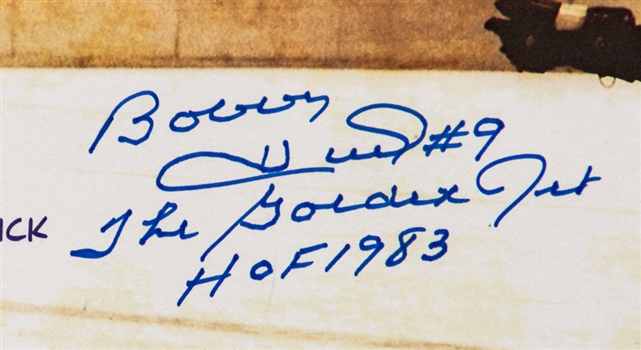 Bobby
Hull #9
ICK
The Golden Jet
HOF 1983